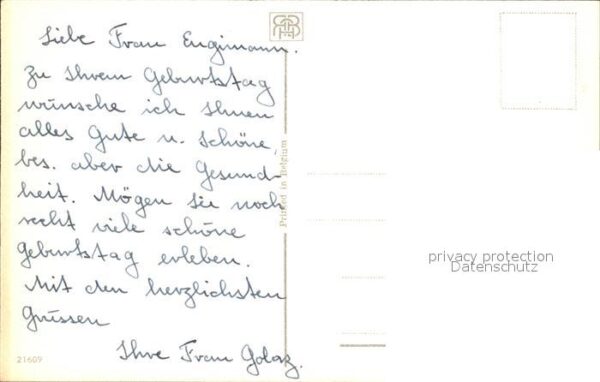 Liebe Frau Engimann.
Zu Ihrem Geburtstag
wünsche ich Ihnen
alles Gute u. Schöne,
bes. aber die Gesund-
heit. Mögen sie noch
recht viele schöne
Geburtstag erleben.
Mit den herzlichsten
Grüssen
Ihre Frau Golaz.
21609
Printed in Belgium
privacy protection
Datenschutz